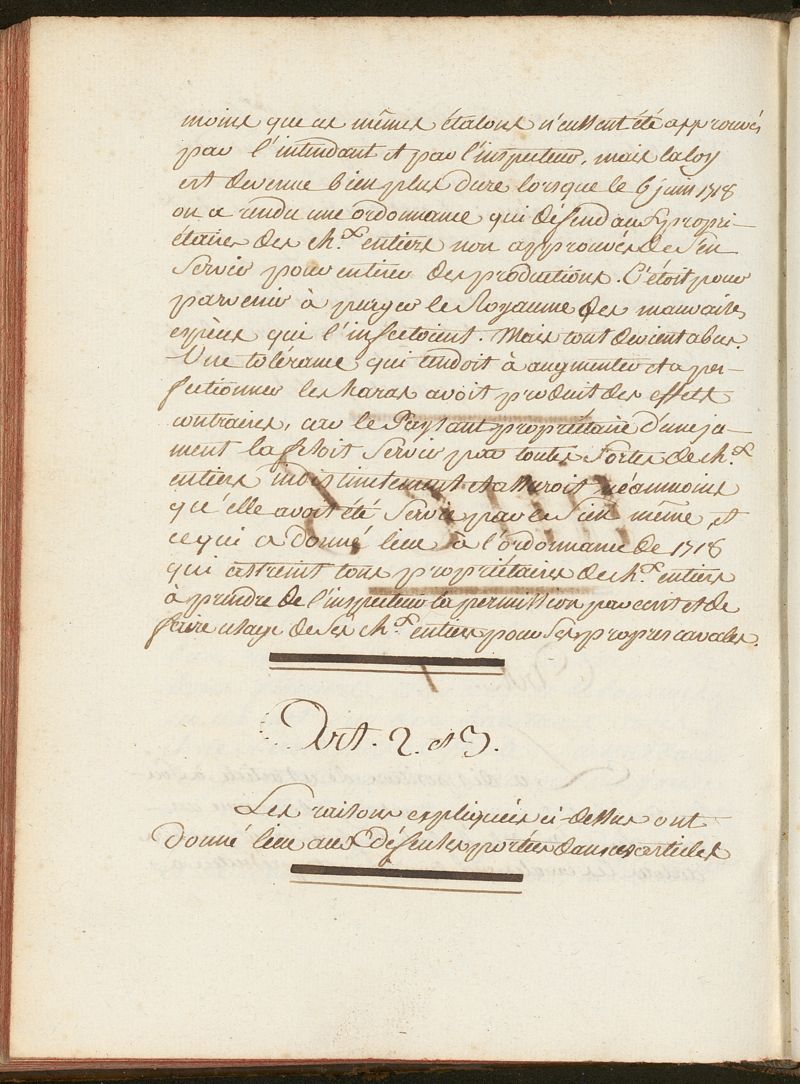 moins que ces mêmes étalons n'eussent été approuvés
par l'intendant et par l'inspecteur, mais la loy
est devenue bien plus dure lorsque le 6 juin 1718
on a rendu une ordonnance qui défend aux propri-
étaires des ch.x entiers non approuvés de s'en
servir pour en tirer des productions. C'étoit pour
parvenir à purger le Royaume des mauvaises
espèces qui l'infectoient. Mais tout devient abus.
Une tolérance qui tendoit à augmenter et a per-
fectionner les haras avoit produit des effets
contraires, car le Paysant propriétaire d'une ju-
ment la fesoit servir par toutes sortes de ch.x
entiers indistinctement et assuroit néanmoins
qu'elle avoit été servie par le sien même, et
ce qui a donné lieu à l'ordonnance de 1718
qui astreint tous propriétaires de ch.x entiers
à prendre de l'inspecteur la permission par écrit de
faire usage de ses ch.x entiers pour ses propres cavales.
Art. 2. et 3.
Les raisons expliquées ci-dessus ont
donné lieu aux défenses portées dans ces articles